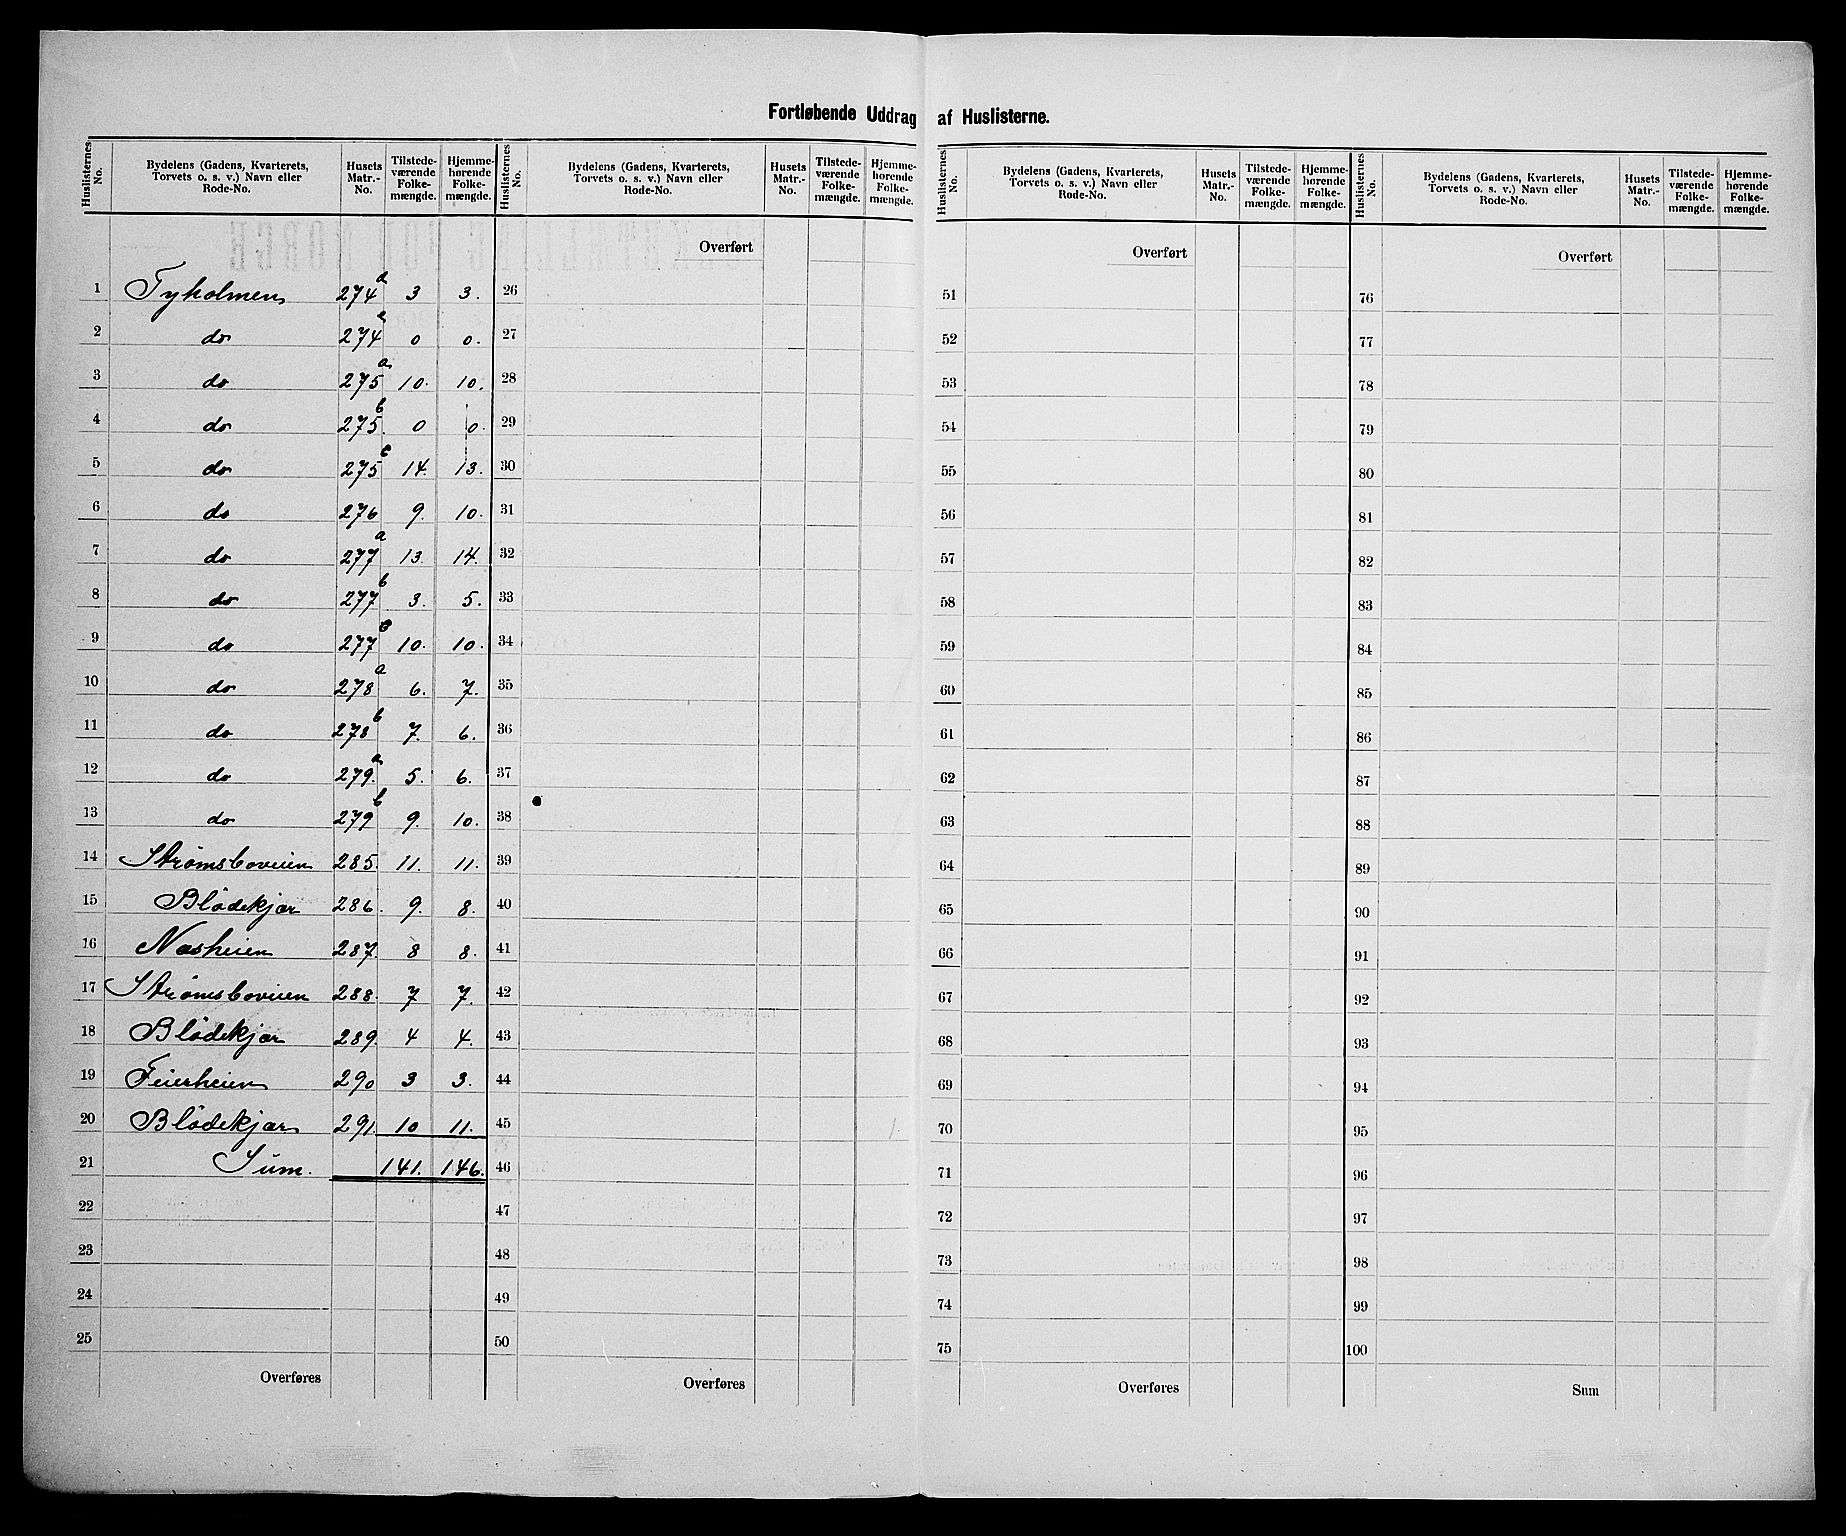 Fortløbende Uddrag af Huslisterne.
Huslisternes No. | Bydelens (Gadens, Kvarterets, Torvets o. s. v.) Navn eller Rode-No. | Husets Matr.-No. | Tilstedeværende Folkemængde. | Hjemmehørende Folkemængde.
1 Tyholmen 274 d 3 3.
2 do 274 e 0 0.
3 do 275 a 10. 10.
4 do 275 b 0 0.
5 do 275 c 14. 13.
6 do 276 9. 10.
7 do 277 a 13. 14.
8 do 277 b 3. 5.
9 do 277 c 10. 10.
10 do 278 a 6. 7.
11 do 278 b 7. 6.
12 do 279. a 5. 6.
13 do 279 b 9. 10.
14 Strømsboveien 285. 11. 11.
15 Blødekjær 286. 9. 8.
16 Næsheien 287. 8 8.
17 Strømsboveien 288. 7 7.
18 Blødekjær 289. 4 4.
19 Feierheien 290 3 3.
20 Blødekjær 291. 10 11.
21 Sum. 141. 146.
22
23
24
25
Overføres
Huslisternes No. | Bydelens (Gadens, Kvarterets, Torvets o. s. v.) Navn eller Rode-No. | Husets Matr.-No. | Tilstedeværende Folkemængde. | Hjemmehørende Folkemængde.
Overført
26
27
28
29
30
31
32
33
34
35
36
37
38
39
40
41
42
43
44
45
46
47
48
49
50
Overføres
Huslisternes No. | Bydelens (Gadens, Kvarterets, Torvets o. s. v.) Navn eller Rode-No. | Husets Matr.-No. | Tilstedeværende Folkemængde. | Hjemmehørende Folkemængde.
Overført
51
52
53
54
55
56
57
58
59
60
61
62
63
64
65
66
67
68
69
70
71
72
73
74
75
Overføres
Huslisternes No. | Bydelens (Gadens, Kvarterets, Torvets o. s. v.) Navn eller Rode-No. | Husets Matr.-No. | Tilstedeværende Folkemængde. | Hjemmehørende Folkemængde.
Overført
76
77
78
79
80
81
82
83
84
85
86
87
88
89
90
91
92
93
94
95
96
97
98
99
100
Sum